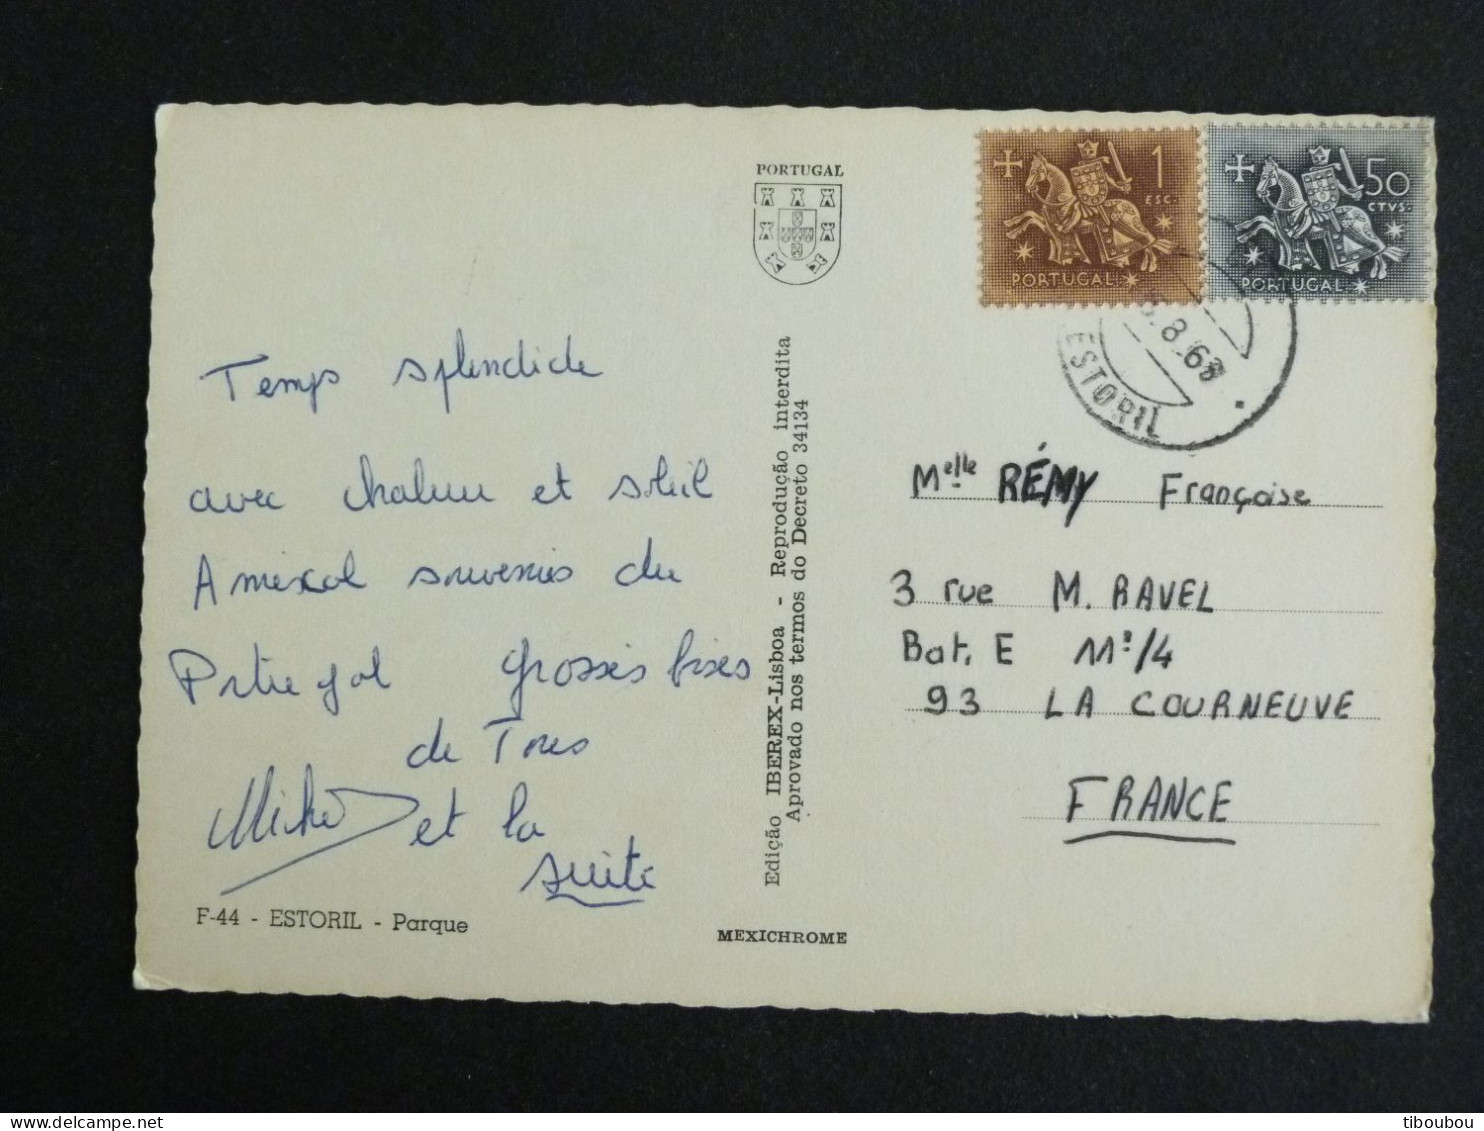 Temps splendide
avec chaleur et soleil
Amical souvenirs du
Portugal grosses bises
de Tous
Michel et la
suite
F-44 - ESTORIL - Parque
PORTUGAL
Edição IBEREX-Lisboa - Reprodução interdita
Aprovado nos termos do Decreto 34134
MEXICHROME
1
ESC.
PORTUGAL
50
CTVS.
PORTUGAL
8.68
ESTORIL
Melle RÉMY Françoise
3 rue M. RAVEL
Bat. E 11º/4
93 LA COURNEUVE
FRANCE
tiboubou